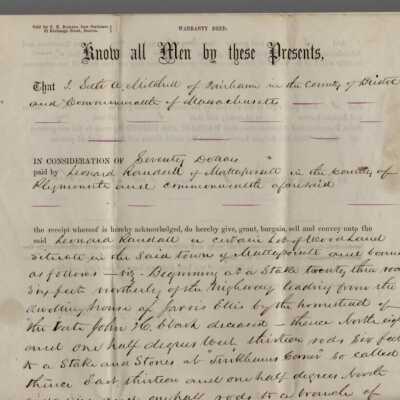 Sold by
WARRANTY DEED.
Know all Men by these Presents,
That I Seth A. Mitchell of Fairhaven in the County of Bristol
and Commonwealth of Massachusetts
IN CONSIDERATION OF Seventy Dollars
paid by Leonard Randall of Mattapoisett in the County of
Plymouth and commonwealth aforesaid
the receipt whereof is hereby acknowledged, do hereby give, grant, bargain, sell and convey unto the
said Leonard Randall a certain Lot of Woodland
situate in the Said town of Mattapoisett and boun
as follows – viz – Beginning at a Stake twenty three rods
Six feet northerly of the highway leading from the
dwelling house of Jarvis Ellis by the homestead of
the late John H. Clark deceased – thence North eigh
and one half degrees West thirteen rods Six feet
to a Stake and Stones at "Tinkhams Corner" so called
thence East thirteen and one half degrees North
and one half rods to a branch of